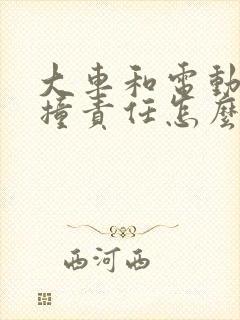 大車和電動
撞責任怎麼
西河西